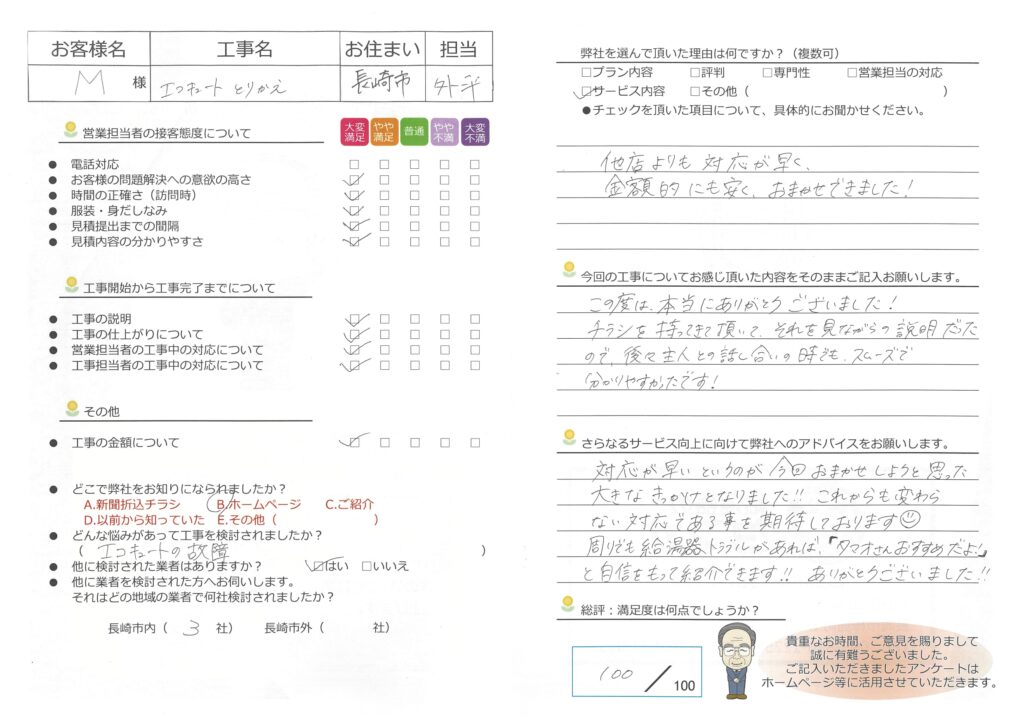 お客様名 工事名 お住まい 担当
M 様 エコキュートとりかえ 長崎市
営業担当者の接客態度について
大変満足 やや満足 普通 やや不満 大変不満
● 電話対応 □ □ □ □ □
● お客様の問題解決への意欲の高さ ☑ □ □ □ □
● 時間の正確さ(訪問時) ☑ □ □ □ □
● 服装・身だしなみ ☑ □ □ □ □
● 見積提出までの間隔 ☑ □ □ □ □
● 見積内容の分かりやすさ ☑ □ □ □ □
工事開始から工事完了までについて
● 工事の説明 ☑ □ □ □ □
● 工事の仕上がりについて ☑ □ □ □ □
● 営業担当者の工事中の対応について ☑ □ □ □ □
● 工事担当者の工事中の対応について ☑ □ □ □ □
その他
● 工事の金額について ☑ □ □ □ □
● どこで弊社をお知りになられましたか?
A.新聞折込チラシ B.ホームページ C.ご紹介
D.以前から知っていた E.その他( )
● どんな悩みがあって工事を検討されましたか?
( エコキュートの故障 )
● 他に検討された業者はありますか? ☑はい □いいえ
● 他に業者を検討された方へお伺いします。
それはどの地域の業者で何社検討されましたか?
長崎市内( 3 社) 長崎市外( 社)
弊社を選んで頂いた理由は何ですか?(複数可)
□プラン内容 □評判 □専門性 □営業担当の対応
☑サービス内容 □その他( )
●チェックを頂いた項目について、具体的にお聞かせください。
他店よりも対応が早く、
金額的にも安く、おまかせできました!
今回の工事についてお感じ頂いた内容をそのままご記入お願いします。
この度は、本当にありがとうございました!
チラシを持ってきて頂いて、それを見ながらの説明だった
ので、後々主人との話し合いの時でも、スムーズで
分かりやすかったです!
さらなるサービス向上に向けて弊社へのアドバイスをお願いします。
対応が早いというのが今回おまかせしようと思った
大きなきっかけとなりました!! これからも変わら
ない対応である事を期待しております☺
周りでも給湯器トラブルがあれば、「タマオさんおすすめだよ!」
と自信をもって紹介できます!! ありがとうございました!!
総評:満足度は何点でしょうか?
100 / 100
貴重なお時間、ご意見を賜りまして
誠に有難うございました。
ご記入いただきましたアンケートは
ホームページ等に活用させていただきます。